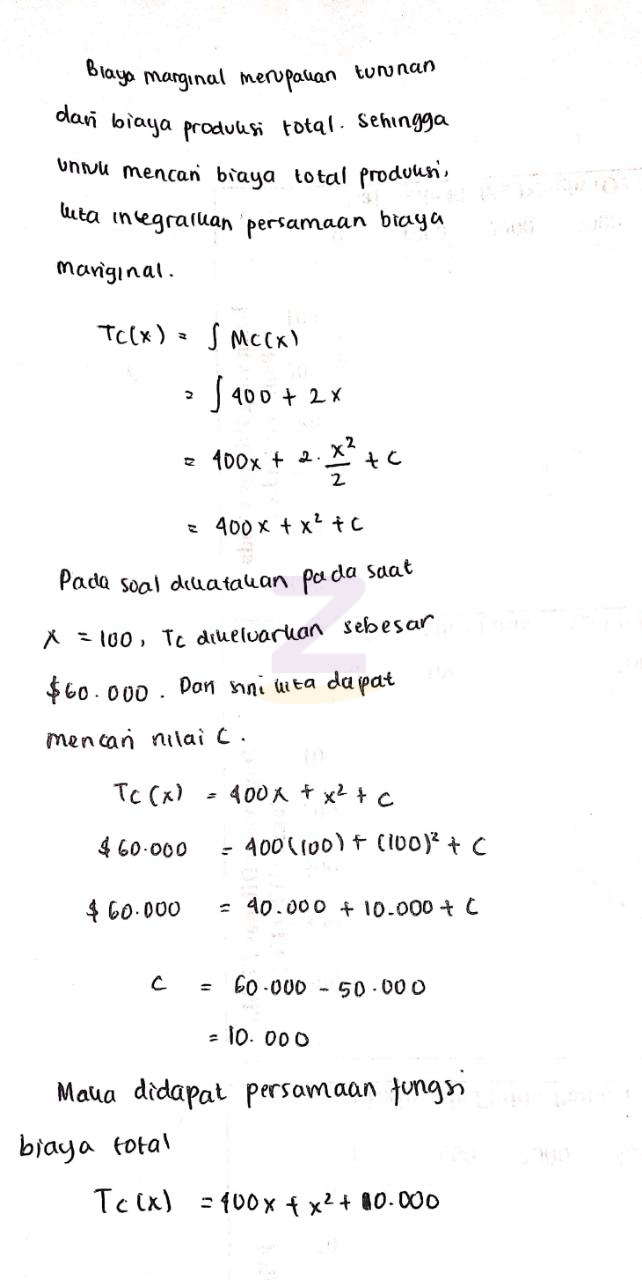 Biaya marginal merupakan turunan
dari biaya produksi total. Sehingga
untuk mencari biaya total produksi,
kita integralkan persamaan biaya
mariginal.
Tc(x) = ∫ Mc(x)
= ∫ 400 + 2x
= 400x + 2. x²/2 + C
= 400x + x² + C
Pada soal dikatakan pada saat
x = 100, Tc dikeluarkan sebesar
$60.000. Dari sini kita dapat
mencari nilai C.
Tc (x) = 400x + x² + C
$60.000 = 400(100) + (100)² + C
$60.000 = 40.000 + 10.000 + C
C = 60.000 - 50.000
= 10.000
Maka didapat persamaan fungsi
biaya total
Tc (x) = 400x + x² + 10.000
Z